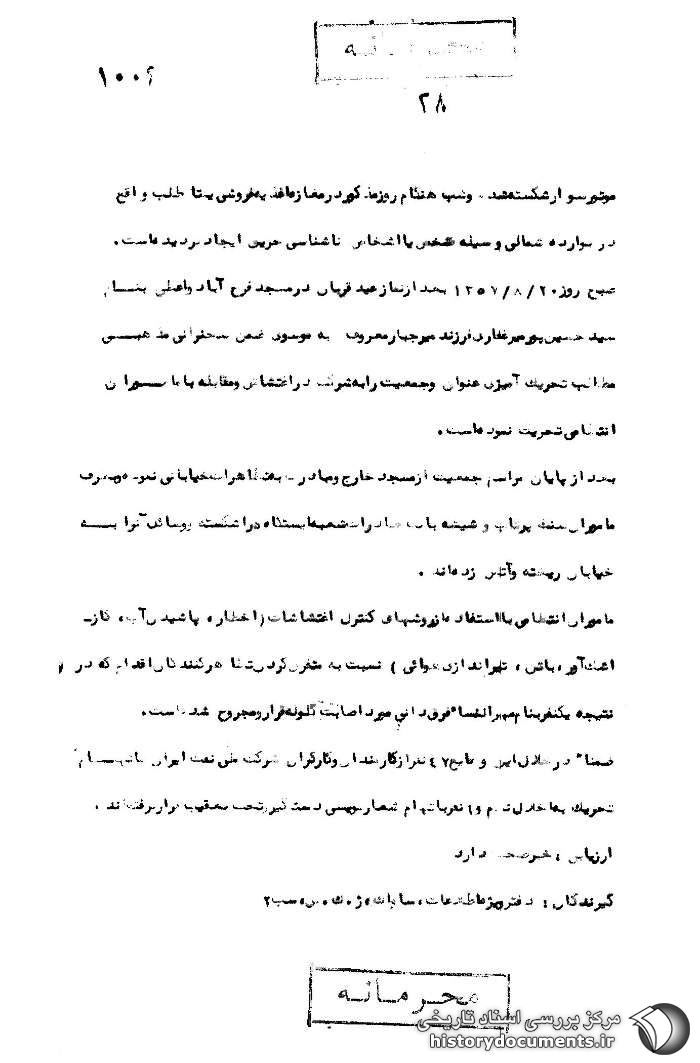 محرمانه
۱۰۰۶
۲۸
موتور سوار شکسته شد. وشب هنگام روز مذکور در مغازه اغذیه فروشی بیتا طلب واقع
در سوارده شمالی وسیله شخص یا اشخاص ناشناسی حریق ایجاد گردیده است.
صبح روز ۱۳۵۷/۸/۲۰ بعد از نماز عید قربان در مسجد فرح آباد واعظی بنام
سید حسین پور میر غفاری فرزند میر جبار معروف به موسوی ضمن سخنرانی مذهبی
مطالب تحریک آمیزی عنوان وجمعیت را به شرکت در اغتشاش ومقابله با مامورران
انتظامی تحریک نموده است.
بعد از پایان مراسم جمعیت از مسجد خارج ومبادرت به تظاهرات خیابانی نموده وبطرف
ماموران سنگ پرتاب و شیشه بانک صادرات شعبه ایستگاه را شکسته ووسائل آنرا به
خیابان ریخته وآتش زده اند.
ماموران انتظامی با استفاده از روشهای کنترل اغتشاشات (اخطار، پاشیدن آب، گاز
اشک آور، باتن، تیراندازی هوائی) نسبت به متفرق کردن تظاهرکنندگان اقدام که در
نتیجه یکنفر بنام مهرالنساء فرق دانی مورد اصابت گلوله قرار ومجروح شده است.
ضمناً در خلال این وقایع ۴۷ نفر از کارمندان وکارگران شرکت ملی نفت ایران باتهام
تحریک به اخلال نظم و ۱ نفر باتهام شعارنویسی دستگیر وتحت تعقیب قرار گرفته اند.
ارزیابی، خبر صحت دارد
گیرندگان: دفتر ویژه اطلاعات، ساواک، ژ.ک.ش، سب ۲
محرمانه
مرکز بررسی اسناد تاریخی
historydocuments.ir